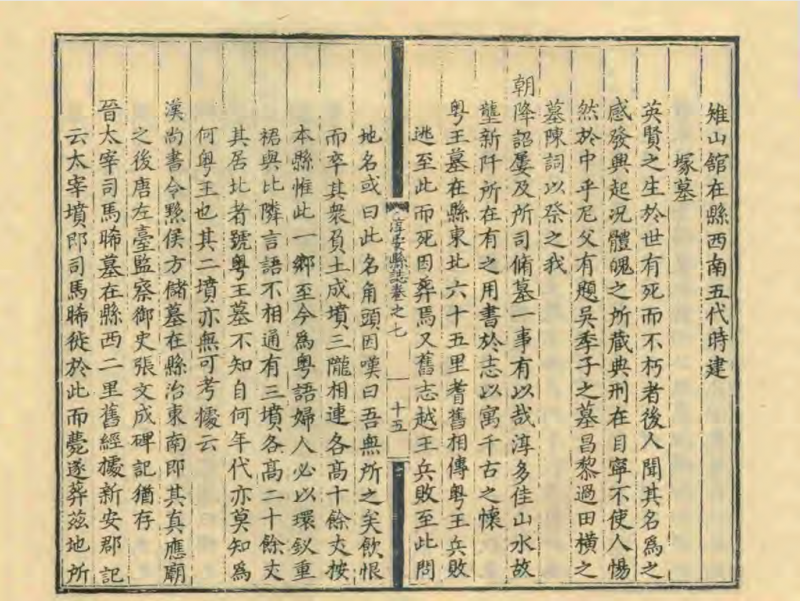 雉山館在縣西南五代時建
塚墓
英賢之生於世有死而不朽者後人聞其名爲之
感發興起况體魄之所藏典刑在目寧不使人惕
然於中乎尼父有題吳季子之墓昌黎過田橫之
墓陳詞以祭之我
朝降詔屢及所司脩墓一事有以哉淳多佳山水故
壟新阡所在有之用書於志以寓千古之懷
粤王墓在縣東北六十五里耆舊相傳粤王兵敗
逃至此而死因葬焉又舊志越王兵敗至此問
淳安縣誌卷之七
十五
地名或曰此名角頭因嘆曰吾無所之矣飲恨
而卒其衆負土成墳三隴相連各高十餘丈按
本縣惟此一鄉至今爲粤語婦人必以環釵重
裙與比隣言語不相通有三墳各高二十餘丈
其居比者號粤王墓不知自何年代亦莫知爲
何粤王也其二墳亦無可考據云
漢尚書令黟侯方儲墓在縣治東南即其真應廟
之後唐左臺監察御史張文成碑記猶存
晉太宰司馬晞墓在縣西二里舊經據新安郡記
云太宰墳即司馬晞徙於此而薨遂葬茲地所